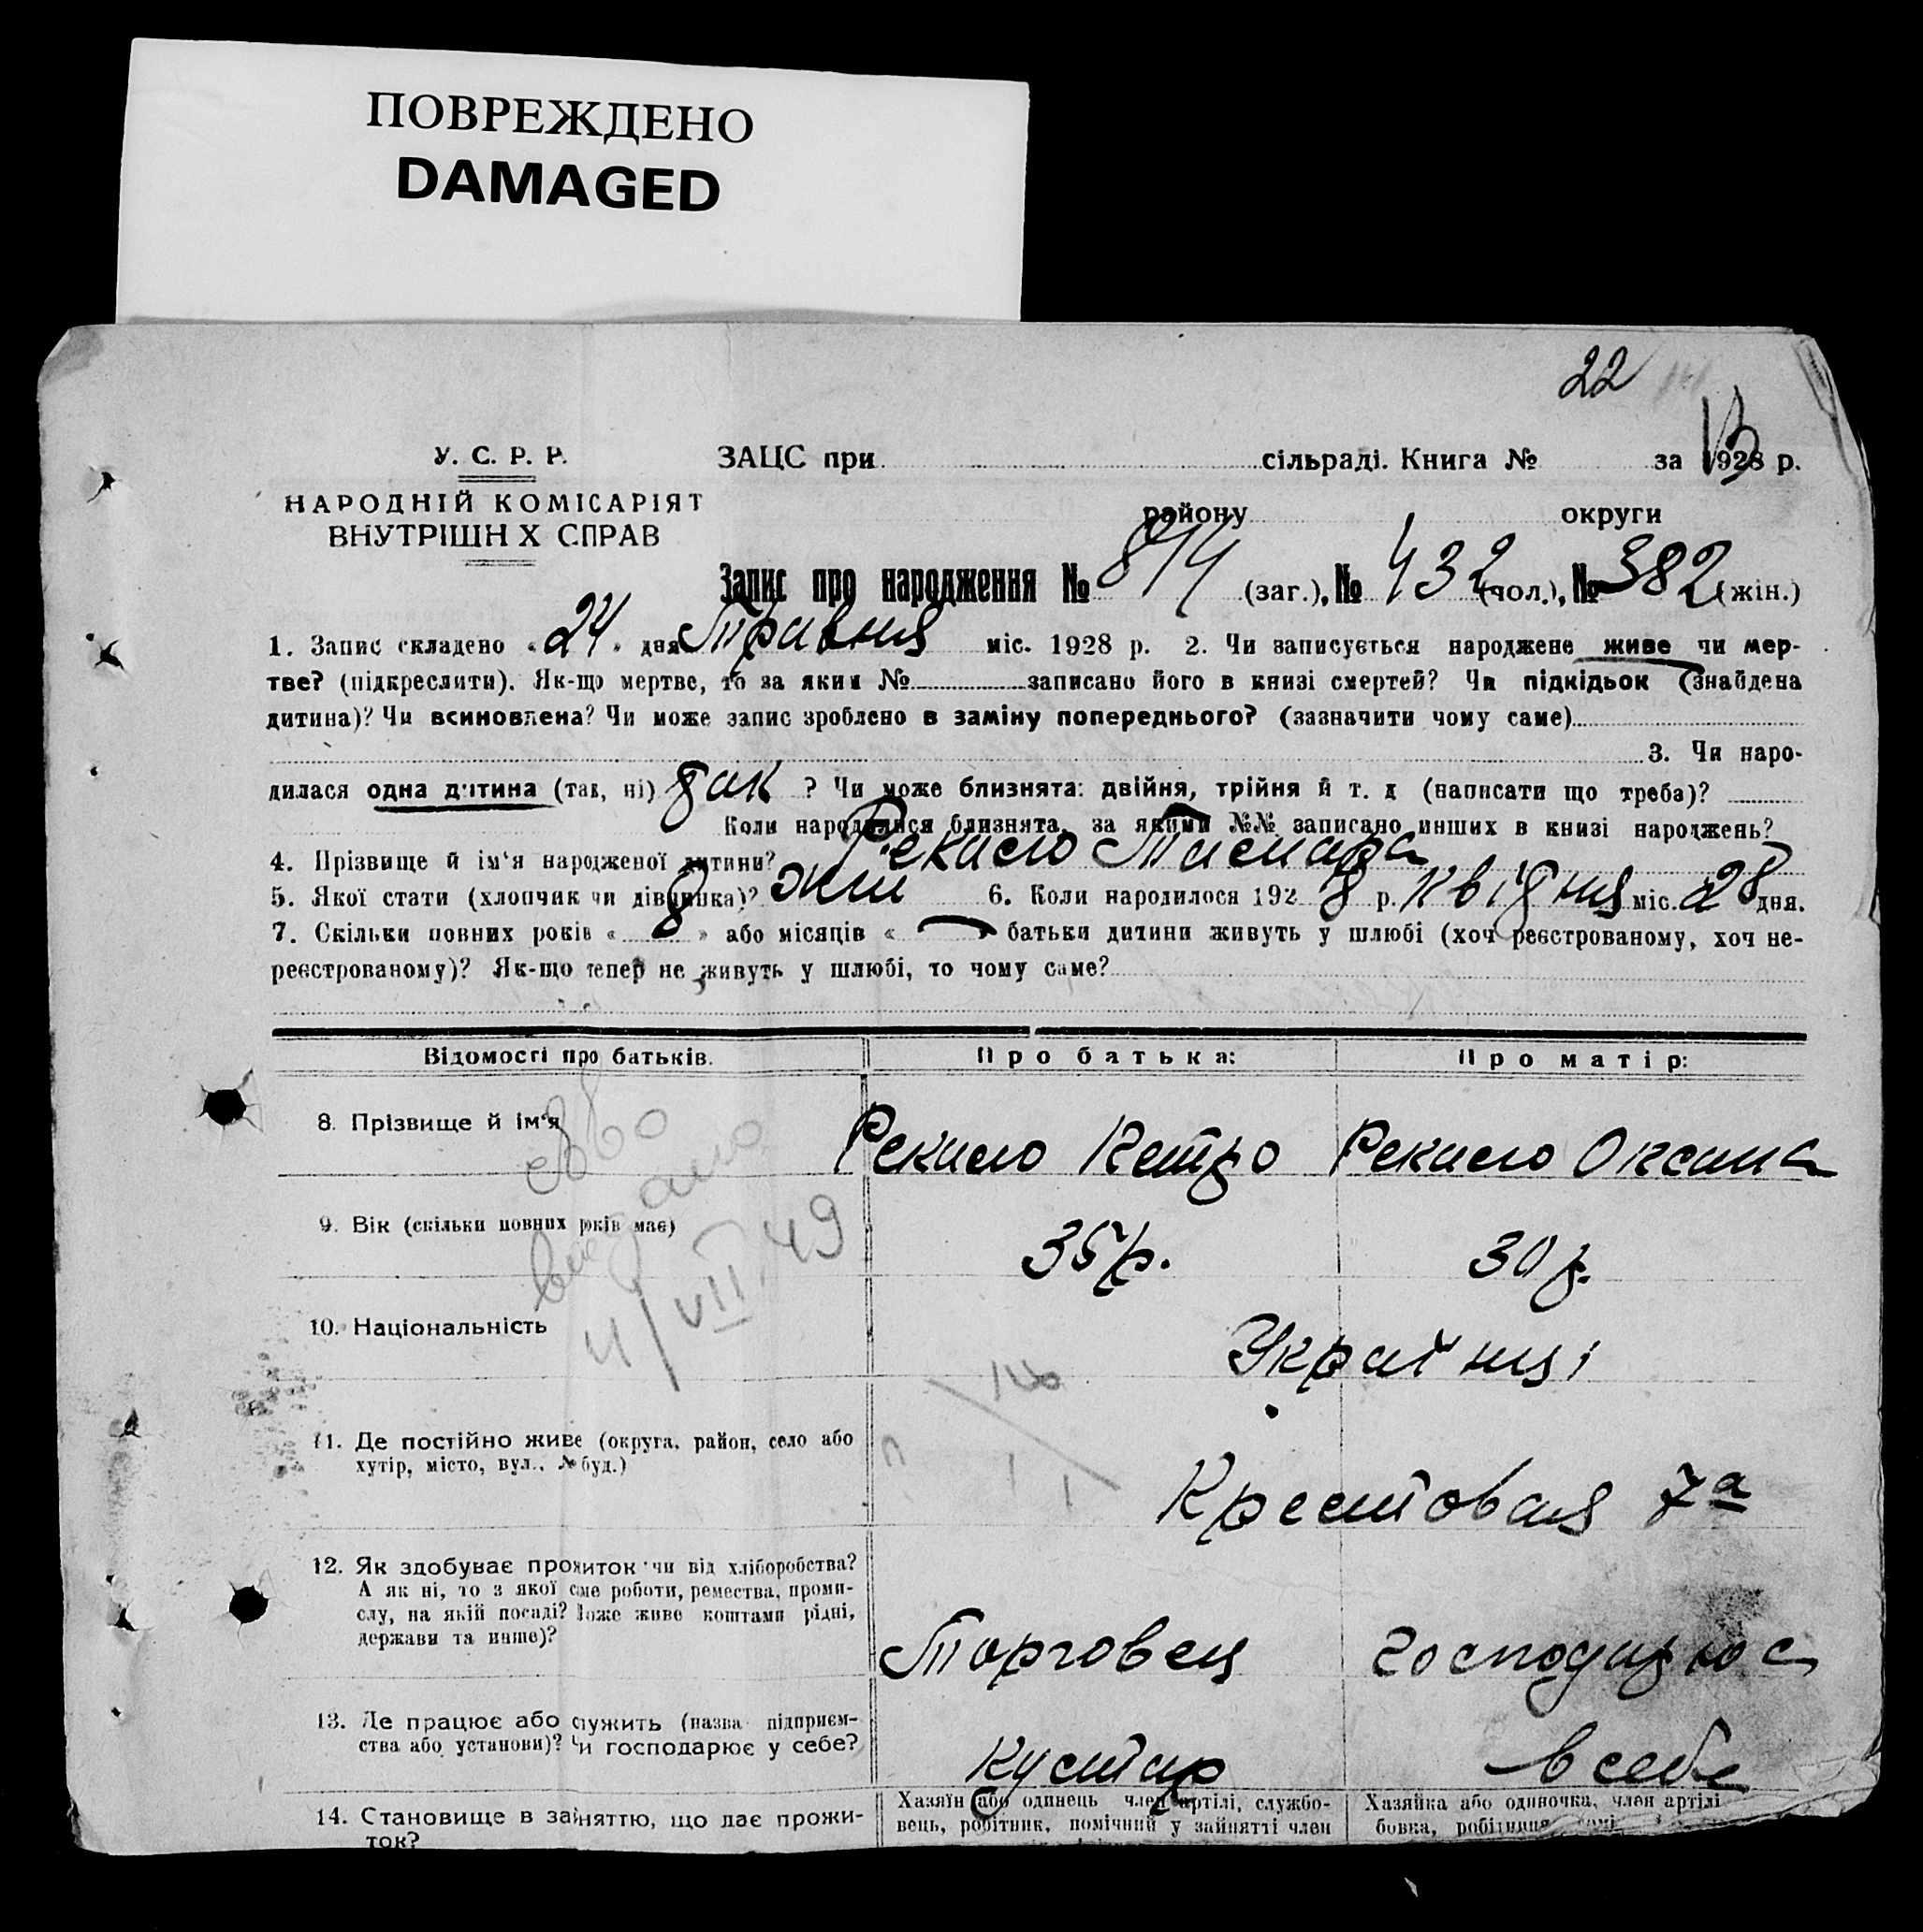 ПОВРЕЖДЕНО
DAMAGED
22
У. С. Р. Р.
ЗАЦС при сільраді. Книга № за 1928 р.
НАРОДНІЙ КОМІСАРІЯТ
району округи
ВНУТРІШН Х СПРАВ
Запис про народження № 814 (заг.), № 432 (чол.), № 382 (жін.)
1. Запис складено «24» дня Травня міс. 1928 р. 2. Чи записується народжене живе чи мер-
тве? (підкреслити). Як-що мертве, то за яким № записано його в книзі смертей? Чи підкідьок (знайдена
дитина)? Чи всиновлена? Чи може запис зроблено в заміну попереднього? (зазначити чому саме)
3. Чи наро-
дилася одна дитина (так, ні) так ? Чи може близнята: двійня, трійня й т. д (написати що треба)?
Коли народилися близнята, за якими №№ записано инших в книзі народжень?
4. Прізвище й ім'я народженої дитини? Рекисло Тамара
5. Якої стати (хлопчик чи дівчинка)? жін 6. Коли народилося 1928 р. Квітня міс. 28 дня.
7. Скільки повних років «8» або місяців « » батьки дитини живуть у шлюбі (хоч реєстрованому, хоч не-
реєстрованому)? Як-що тепер не живуть у шлюбі, то чому саме?
Відомості про батьків. Про батька: Про матір:
8. Прізвище й ім'я Рекисло Петро Рекисло Оксана
9. Вік (скільки повних років має) 35 р. 30 р.
видано
4/VII.49
10. Національність Українці
11. Де постійно живе (округа, район, село або
хутір, місто, вул., № буд.)
Крестовая 7а
12. Як здобуває прожиток чи від хліборобства?
А як ні, то з якої саме роботи, ремества, проми-
слу, на якій посаді? Може живе коштами рідні,
держави та инше)?
Торговец господарює
13. Де працює або служить (назва підприєм-
ства або установи)? Чи господарює у себе?
Кустар в себе
14. Становище в заняттю, що дає прожи-
ток?
Хазяїн або одинець член артілі, службо-
вець, робітник, помічний у зайнятті член
Хазяйка або одиночка, член артілі
бовка, робітниця